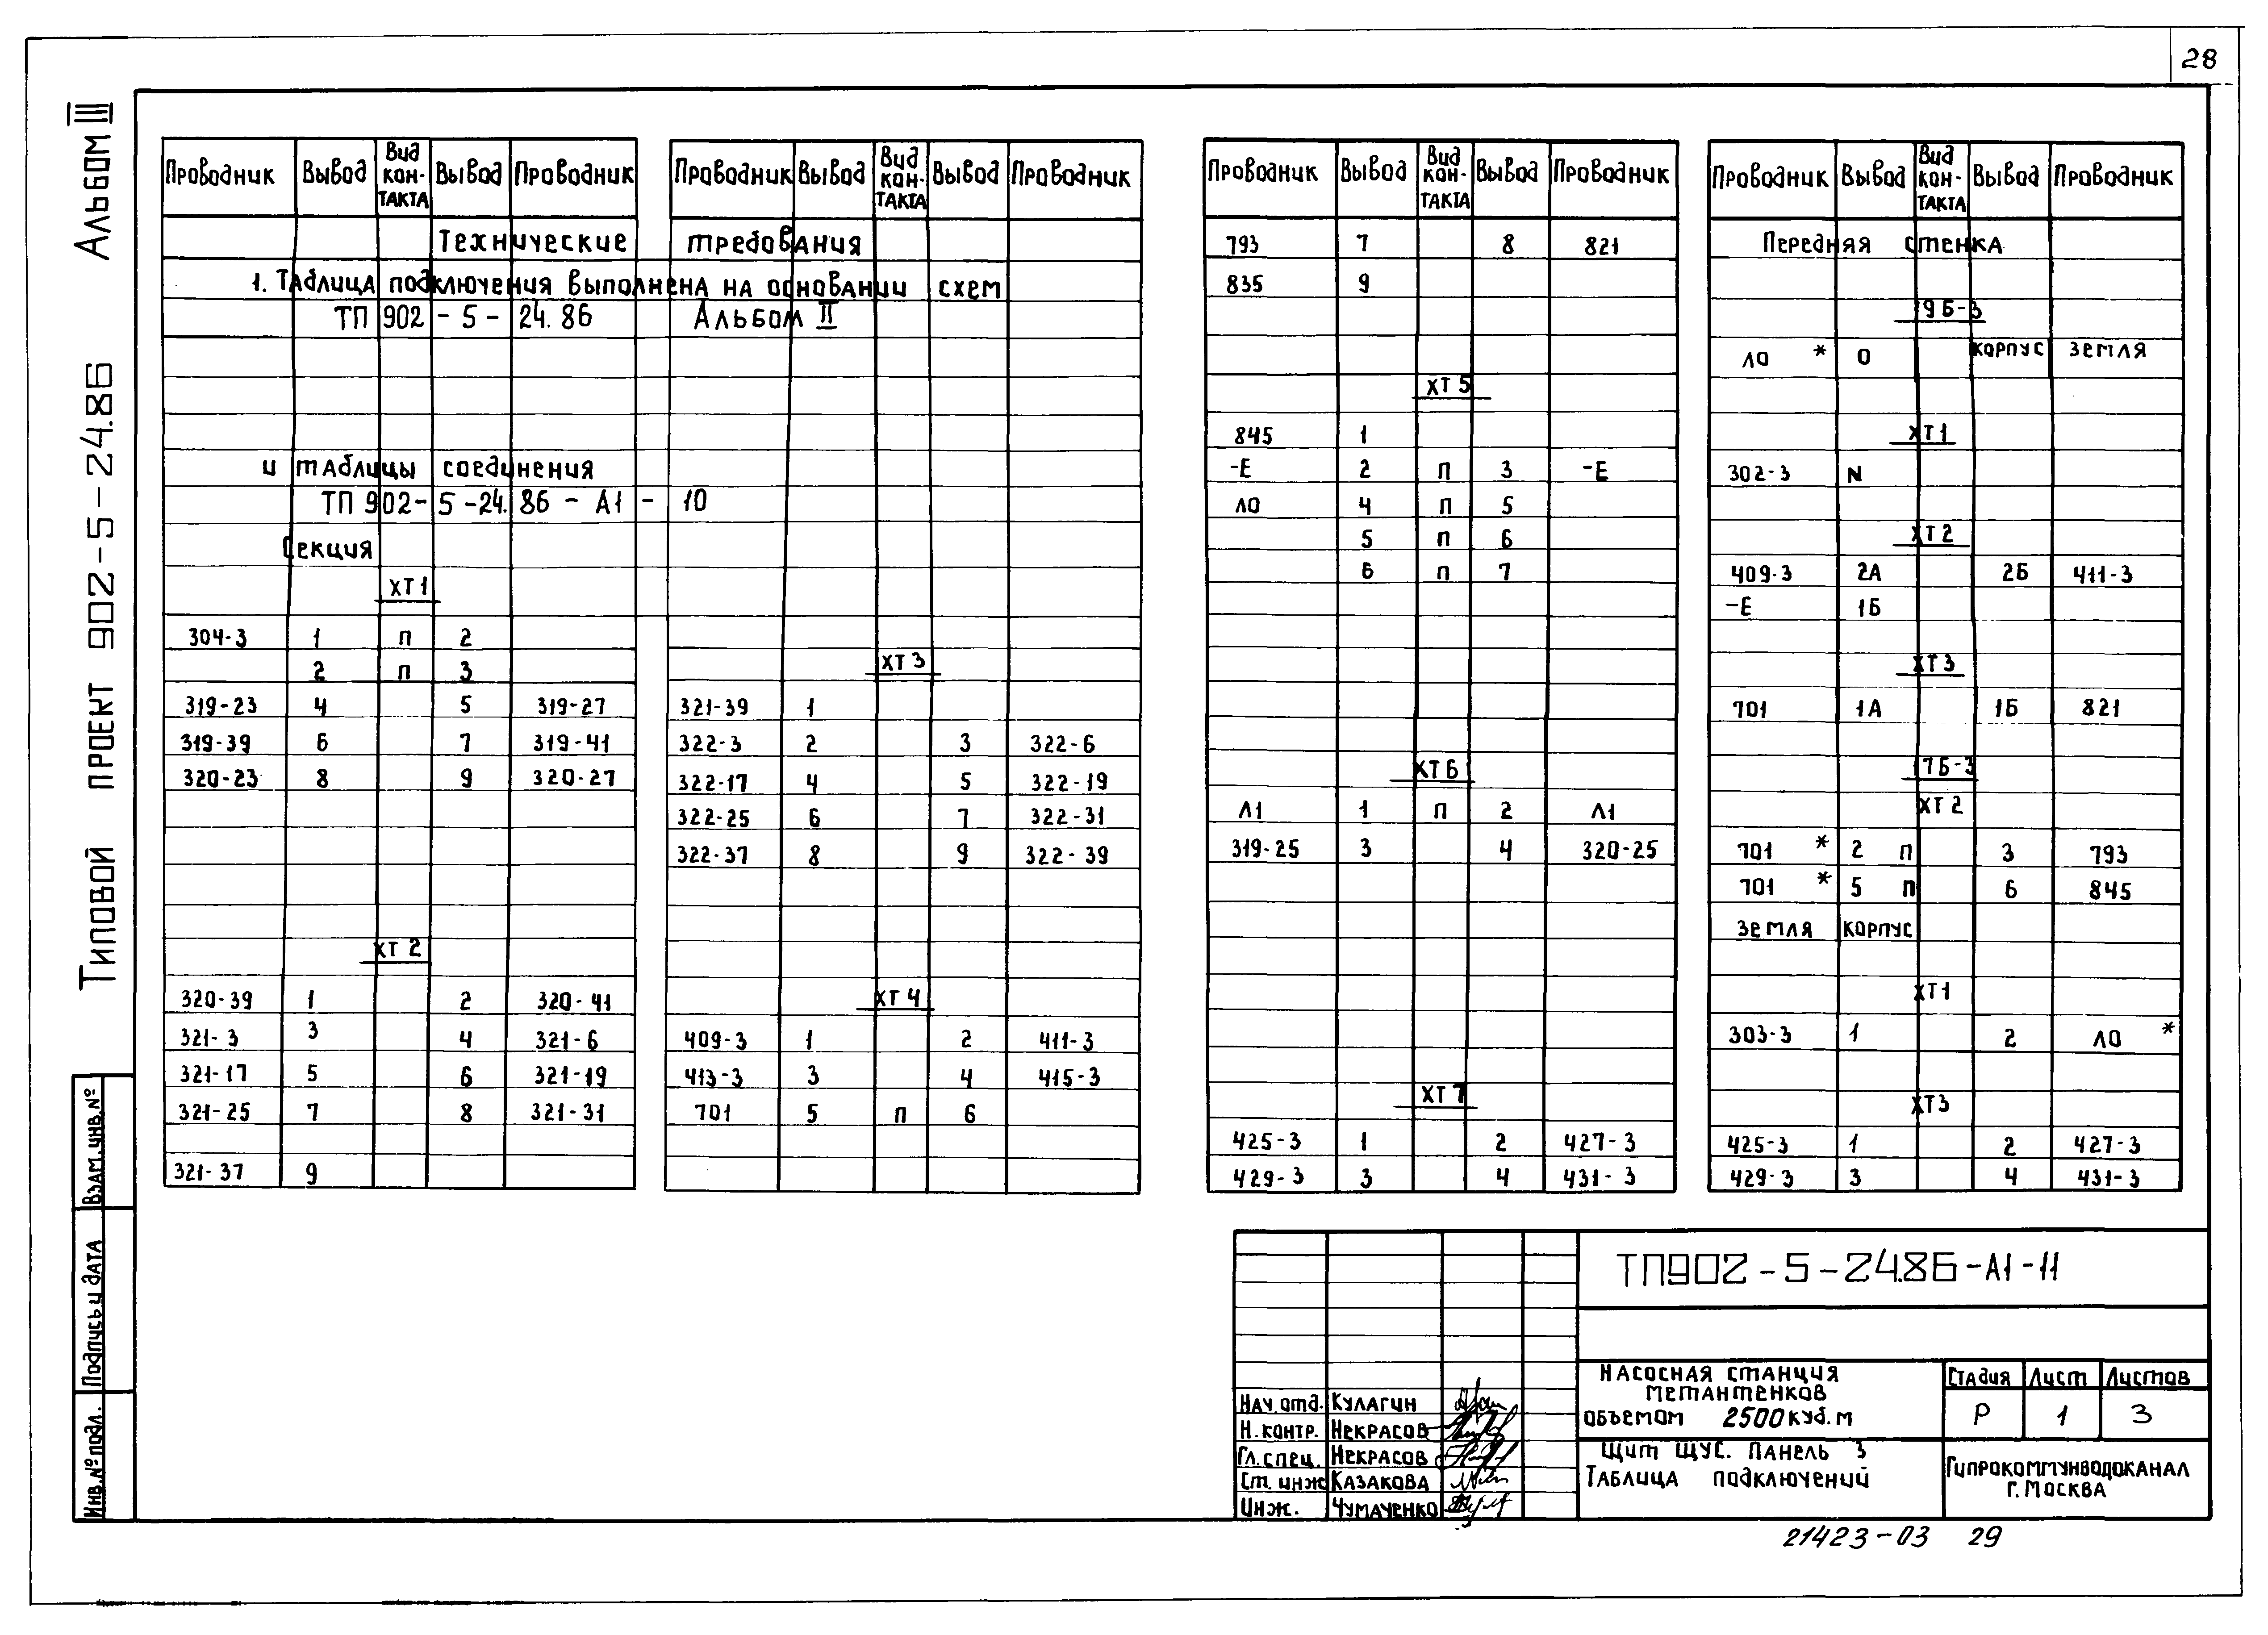 28
Альбом III
Типовой проект 902-5-24.86
Проводник Вывод Вид контакта Вывод Проводник
Технические требования
1. Таблица подключения выполнена на основании схем
ТП 902-5-24.86 Альбом II
и таблицы соединения
ТП 902-5-24.86-А1-10
Секция
ХТ1
304-3 1 п 2
2 п 3
319-23 4 5 319-27
319-39 6 7 319-41
320-23 8 9 320-27
ХТ2
320-39 1 2 320-41
321-3 3 4 321-6
321-17 5 6 321-19
321-25 7 8 321-31
321-37 9
Проводник Вывод Вид контакта Вывод Проводник
ХТ3
321-39 1
322-3 2 3 322-6
322-17 4 5 322-19
322-25 6 7 322-31
322-37 8 9 322-39
ХТ4
409-3 1 2 411-3
413-3 3 4 415-3
701 5 п 6
Проводник Вывод Вид контакта Вывод Проводник
793 7 8 821
835 9
ХТ5
845 1
-Е 2 п 3 -Е
ЛО 4 п 5
5 п 6
6 п 7
ХТ6
Л1 1 п 2 Л1
319-25 3 4 320-25
ХТ7
425-3 1 2 427-3
429-3 3 4 431-3
Проводник Вывод Вид контакта Вывод Проводник
Передняя стенка
19Б-3
ЛО * 0 корпус земля
ХТ1
302-3 N
ХТ2
409-3 2А 2Б 411-3
-Е 1Б
ХТ3
701 1А 1Б 821
17Б-3
ХТ2
701 * 2 п 3 793
701 * 5 п 6 845
земля корпус
ХТ1
303-3 1 2 ЛО *
ХТ3
425-3 1 2 427-3
429-3 3 4 431-3
Взам.инв.№
Подпись и дата
Инв.№ подл.
ТП902-5-24.86-А1-11
Нач.отд. Кулагин
Н.контр. Некрасов
Гл.спец. Некрасов
Ст.инж Казакова
Инж. Чумаченко
Насосная станция
метантенков
объемом 2500 куб.м
Стадия Лист Листов
Р 1 3
Щит ЩУС. Панель 3
Таблица подключений
Гипрокоммунводоканал
г. Москва
21423-03 29